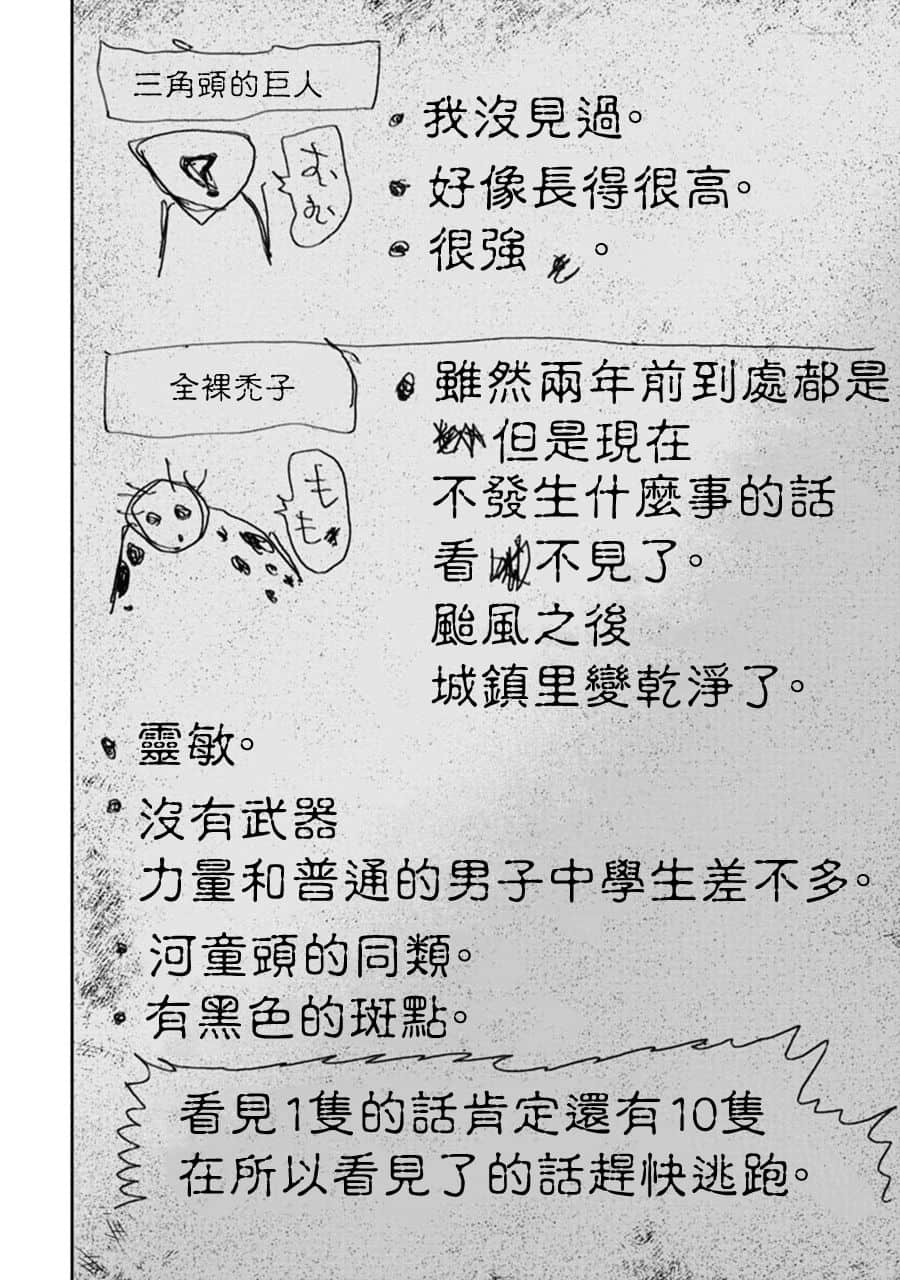 三角頭的巨人
むむ
•我沒見過。
•好像長得很高。
•很強。
全裸禿子
もも
•雖然兩年前到處都是
但是現在
不發生什麼事的話
看不見了。
颱風之後
城鎮里變乾淨了。
•靈敏。
•沒有武器
力量和普通的男子中學生差不多。
•河童頭的同類。
•有黑色的斑點。
看見1隻的話肯定還有10隻
在所以看見了的話趕快逃跑。